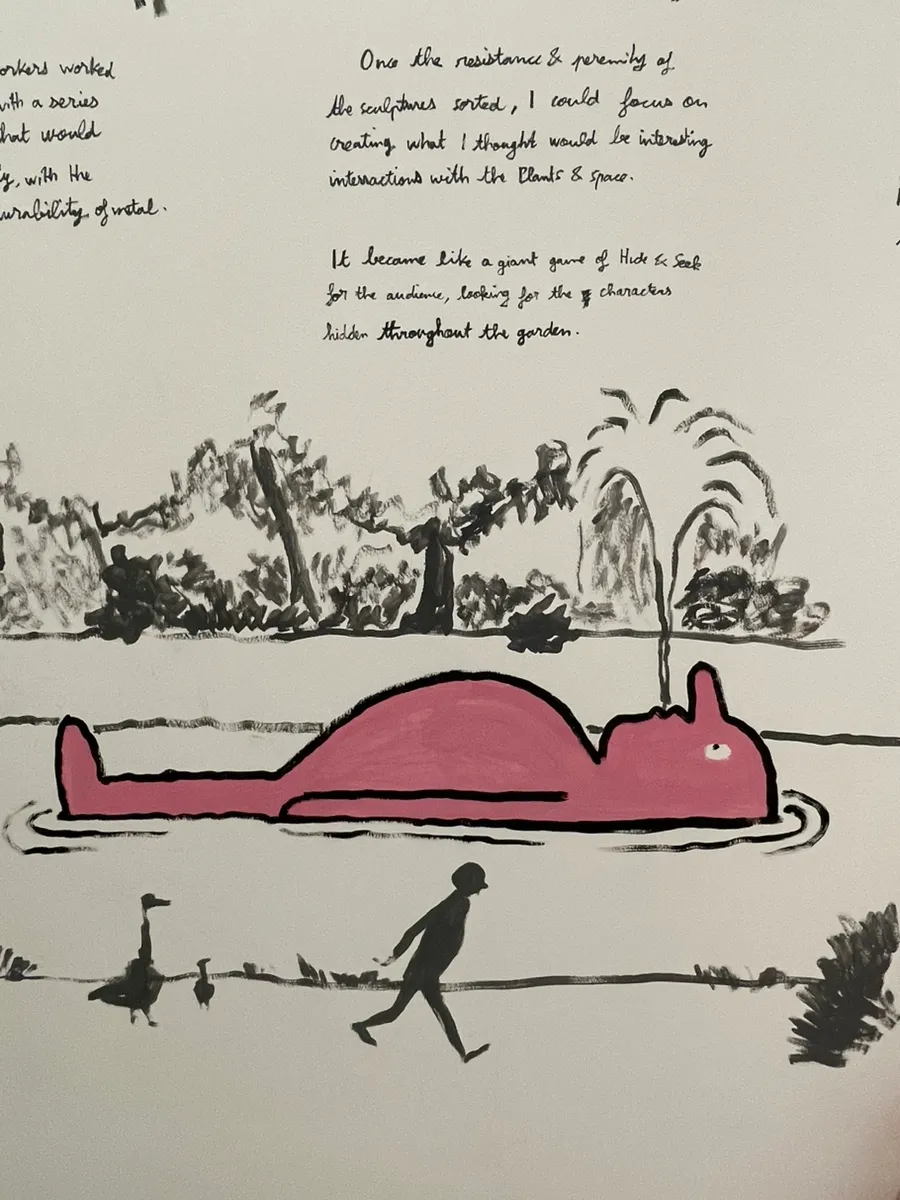 orkers worked
with a series
that would
y, with the
urability of metal.
Once the resistance & peremity of
the sculptures sorted, I could focus on
creating what I thought would be interesting
interractions with the Plants & space.
It became like a giant game of Hide & Seek
for the audience, looking for the characters
hidden throughout the garden.